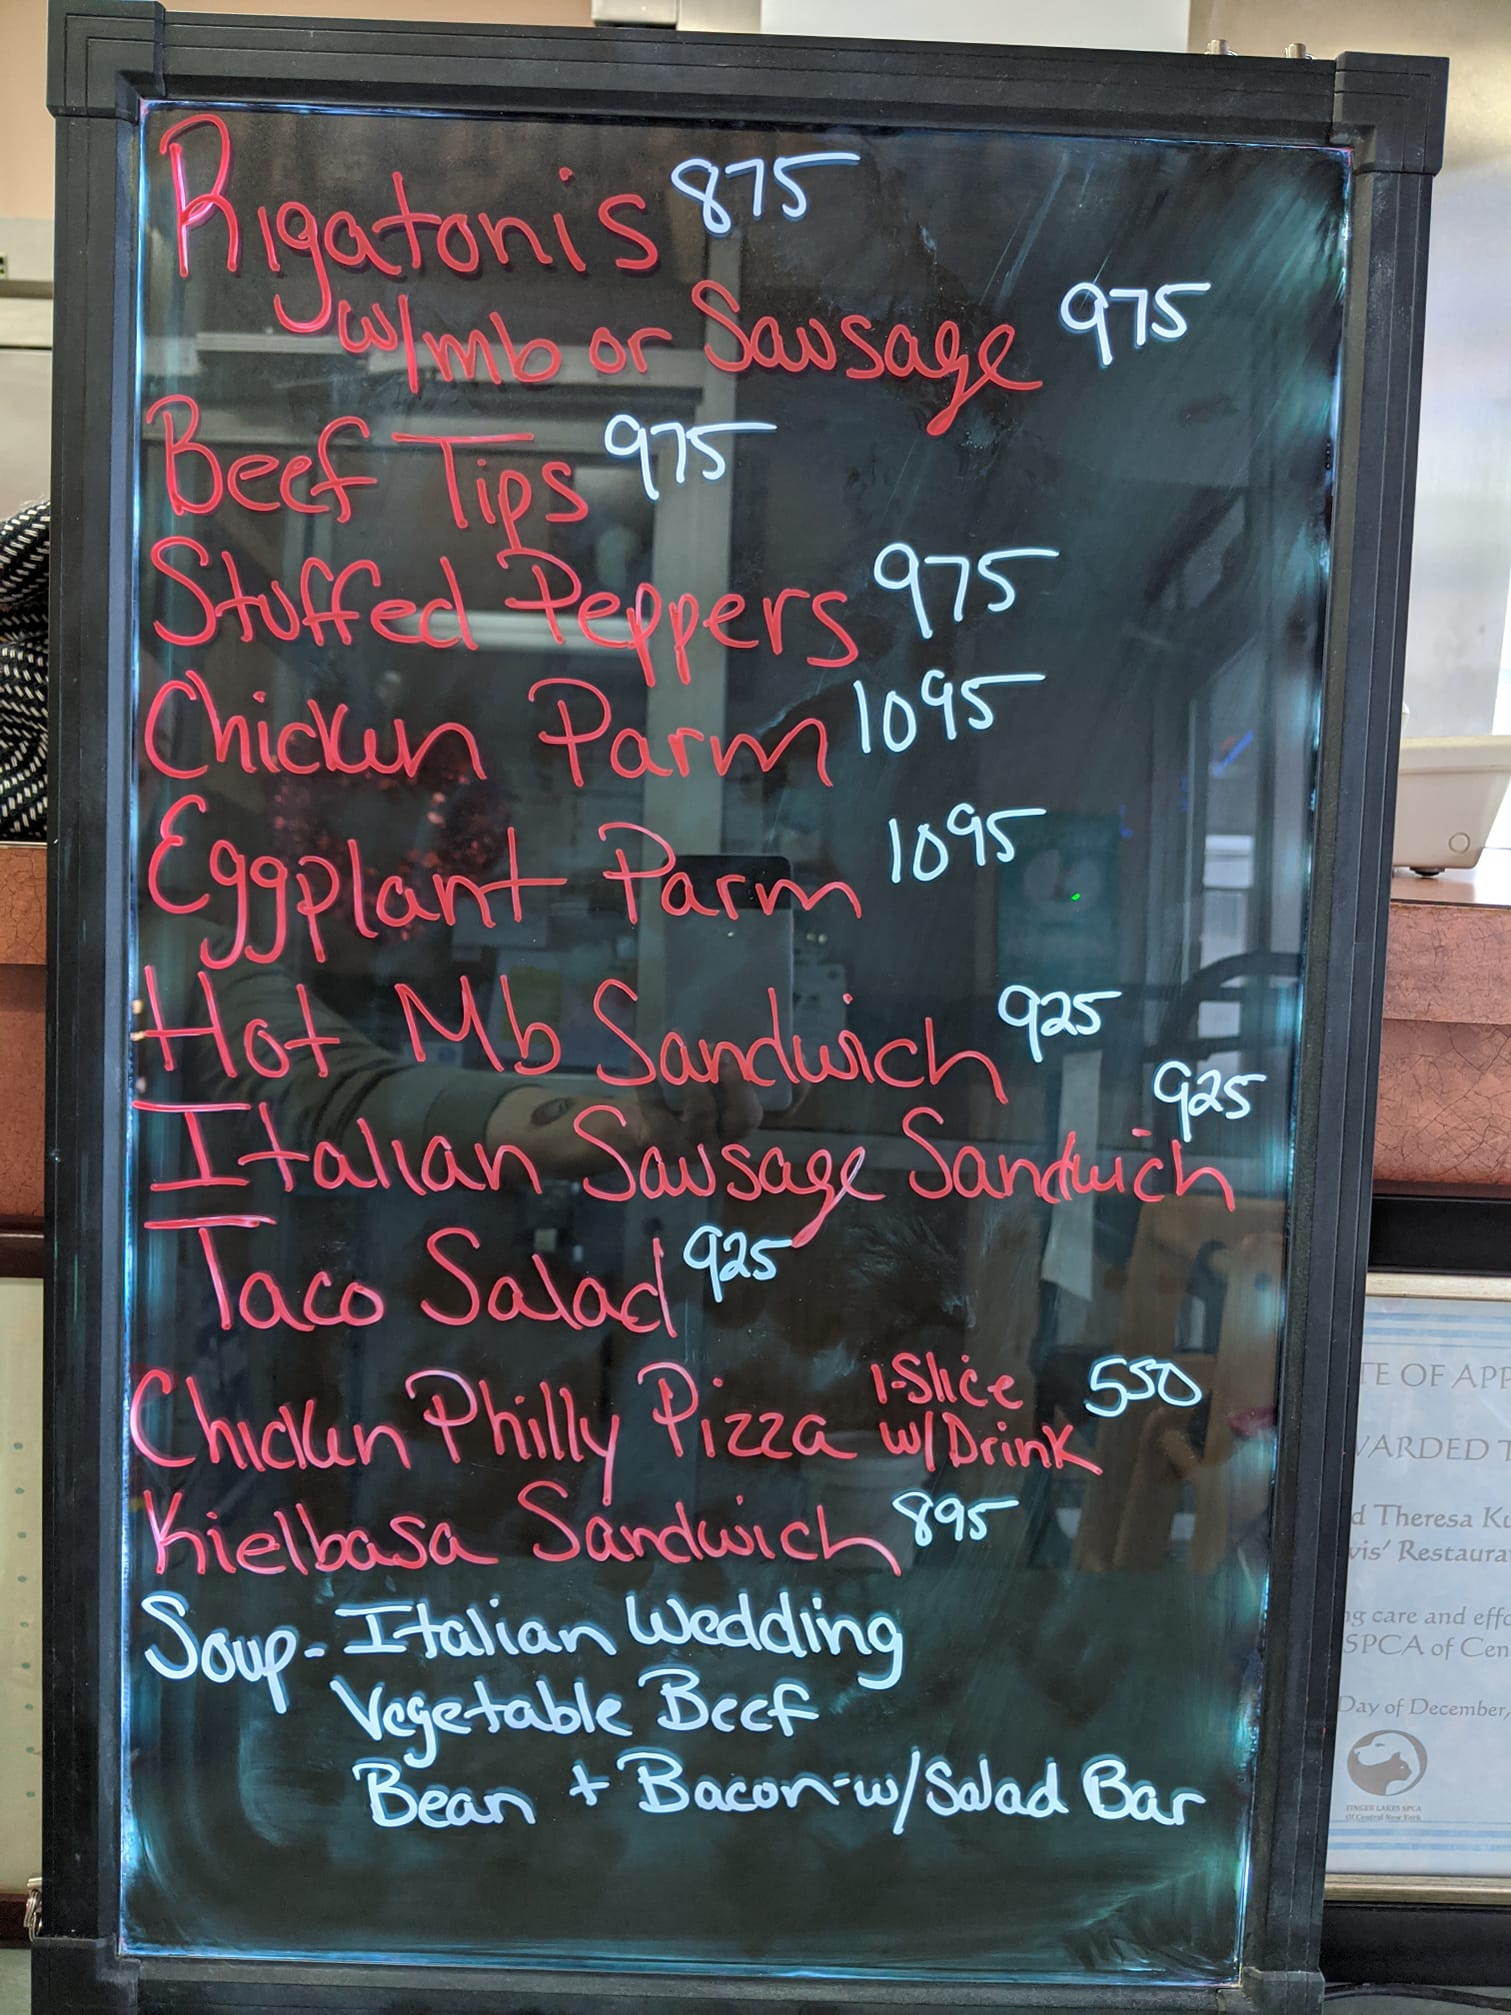 Rigatonis 875
w/mb or Sausage 975
Beef Tips 975
Stuffed Peppers 975
Chicken Parm 1095
Eggplant Parm 1095
Hot Mb Sandwich 925
Italian Sausage Sandwich 925
Taco Salad 925
Chicken Philly Pizza 1-Slice w/Drink 550
Kielbasa Sandwich 895
Soup - Italian Wedding
Vegetable Beef
Bean + Bacon - w/Salad Bar
TE OF APP
WARDED T
d Theresa Ku
vis' Restaura
ng care and effo
SPCA of Cen
Day of December,
FINGER LAKES SPCA
Of Central New York